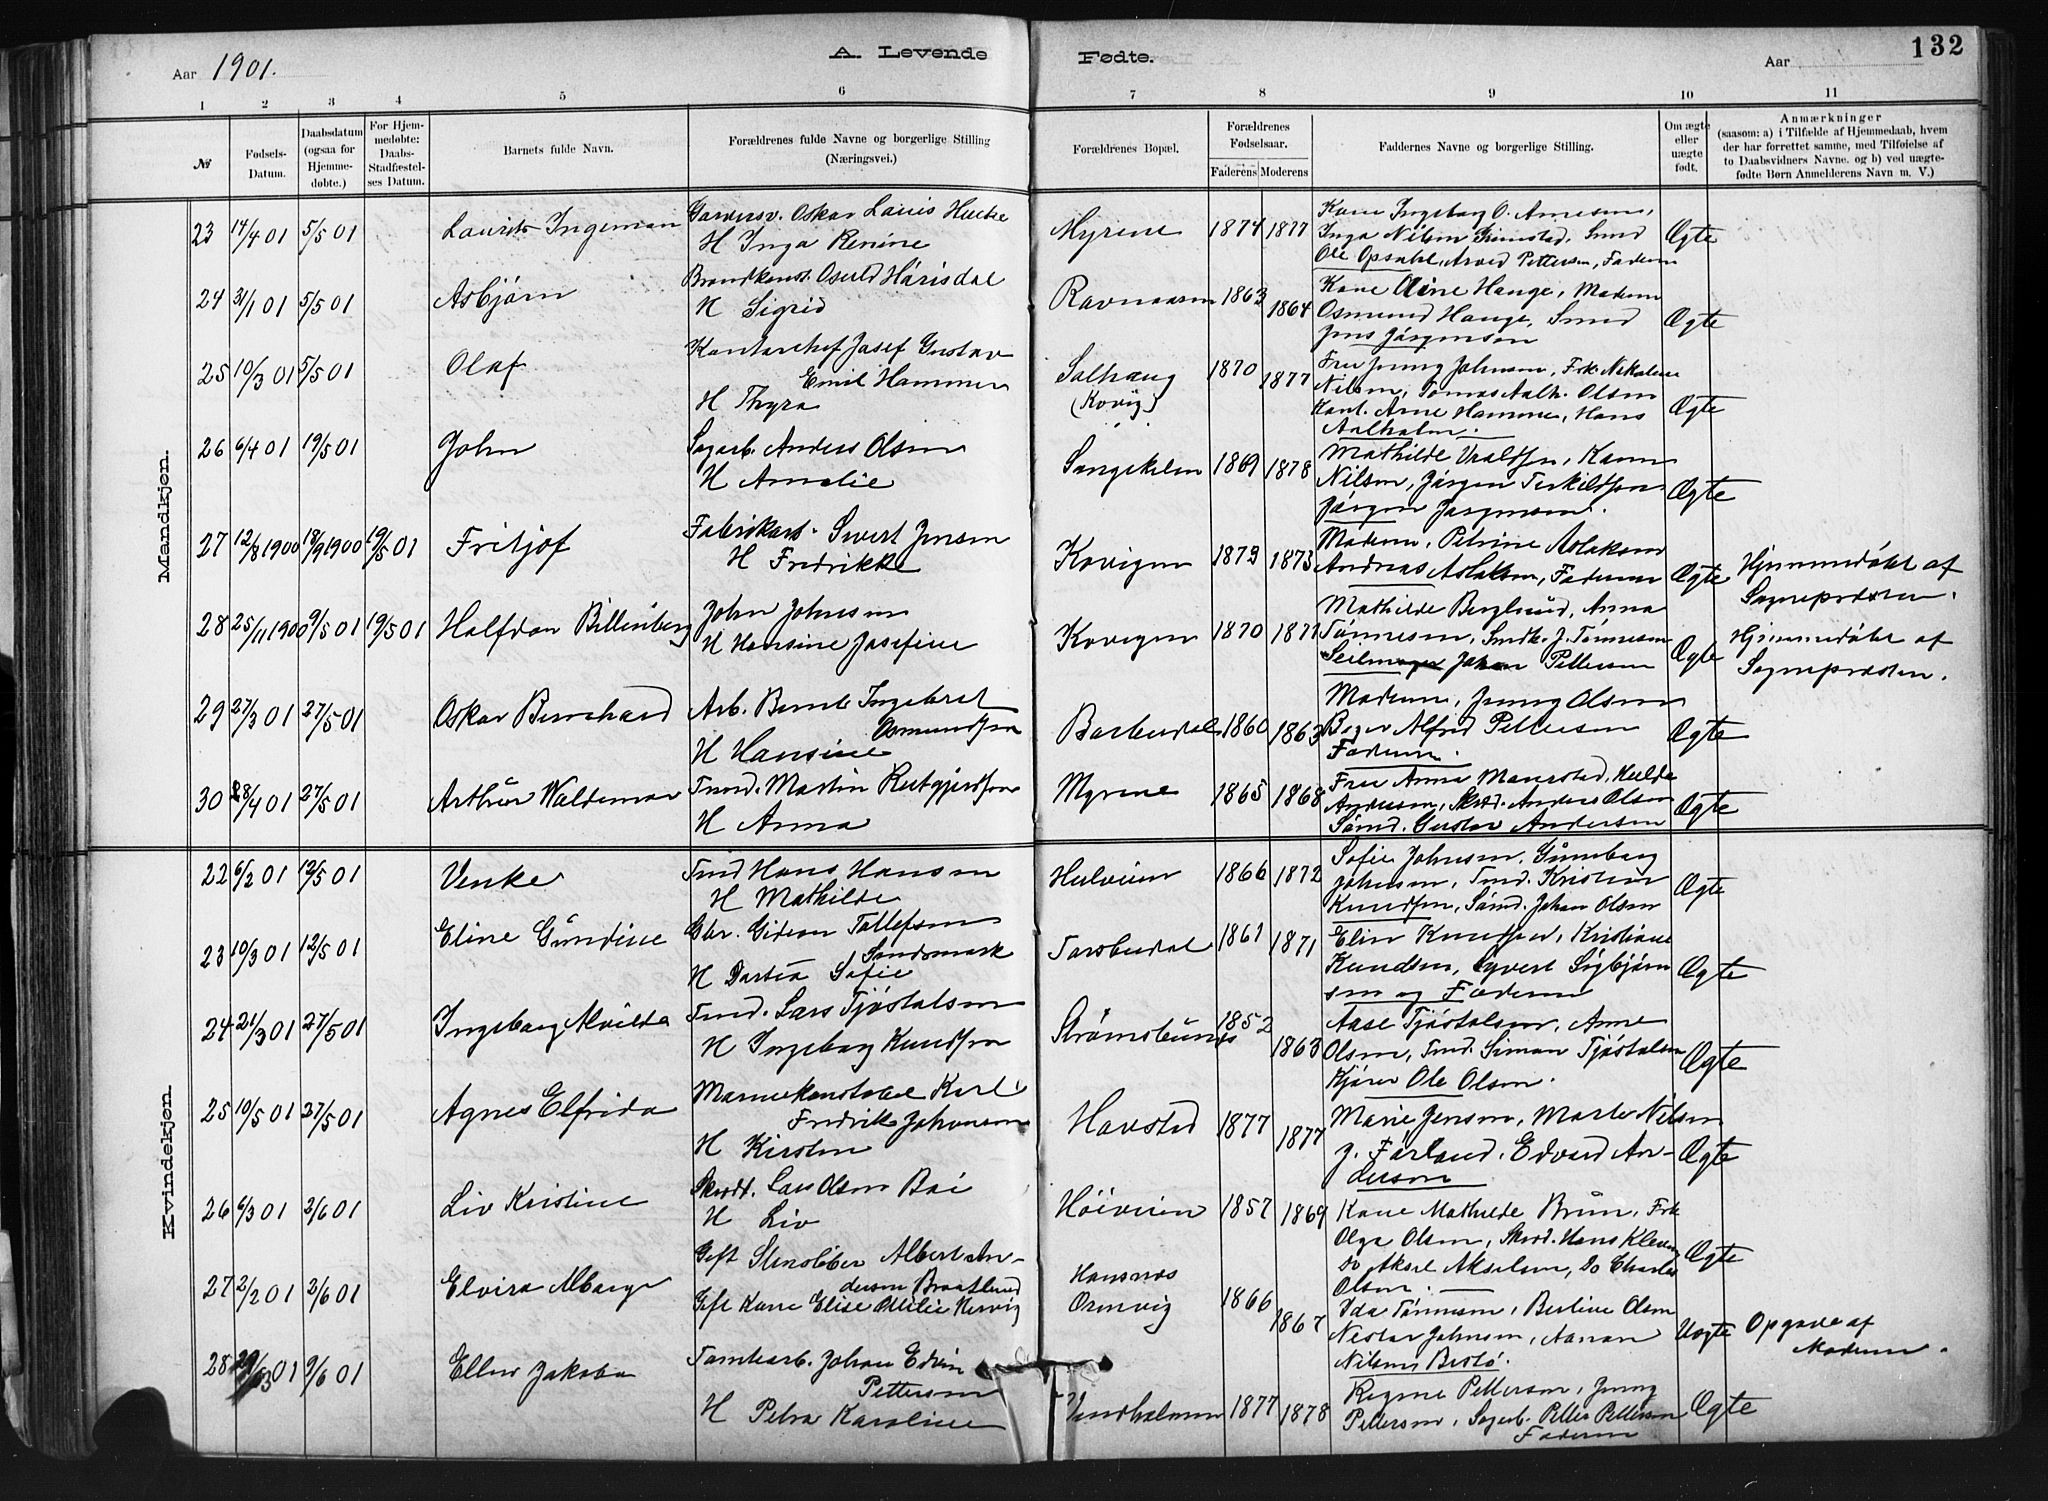 Aar 1901.
A. Levende Fødte.
Aar
132
1 2 3 4 5 6 7 8 9 10 11
№
Fødsels-Datum.
Daabsdatum (ogsaa for Hjemmedøbte.)
For Hjemmedøbte: Daabs-Stadfæstelses Datum.
Barnets fulde Navn.
Forældrenes fulde Navne og borgerlige Stilling (Næringsvei.)
Forældrenes Bopæl.
Forældrenes Fødselsaar.
Faderens Moderens
Faddernes Navne og borgerlige Stilling.
Om ægte eller uægte født.
Anmærkninger
(saasom: a) i Tilfælde af Hjemmedaab, hvem
der har forrettet samme, med Tilføielse af
to Daabsvidners Navne. og b) ved uægte-
fødte Børn Anmelderens Navn m. V.)
Mandkjøn.
23 14/4 01 5/5 01 Laurits Ingeman
Oskar Louis
H Inga Renine
Myrene 1874 1877
Kone Ingeborg O.
Inga Nilsen Grimstad,
Ole Opsahl, Arved Pettersen, Faderen
Ægte
24 31/1 01 5/5 01 Asbjørn
Osuld Hårisdal
H Sigrid
Ravnaasen 1863 1864
Kone Oline Hauge, Moderen
Osmund Hauge, Smed
Jens Jørgensen
Ægte
25 10/3 01 5/5 01 Olaf
Kontorchef Josef Gustav
Emil Hammer
H Thyra
Solhaug
(Kovig)
1870 1877
Fru Jenny Johnsen, Frk. Nikoline
Nilsen, Tomas Aalh. Olsen
Kont. Arne Hammer, Hans
Aalholm.
Ægte
26 6/4 01 19/5 01 John
Sagarb. Anders Olsen
H Amalie
Songekilen 1869 1878
Mathilde
Nilsen, Jørgen Terkildsen
Jørgen Jørgensen.
Ægte
27 12/8 1900 18/9 1900 19/5 01 Fritjof
Fabrikarb. Sivert Jensen
H Fredrikke
Kovigen 1873
Moderen, Petrine Aslaksen
Andreas Aslaksen, Faderen
Ægte
Hjemmedøbt af
Sognepresten.
28 25/11 1900 9/5 01 19/5 01 Halfdan Billenberg
John Johnsen
H Hansine Josefine
Kovigen 1870 1871
Mathilde Berglund, Anna
Tønnesen, Smdk. J. Tønnesen
Seilmager Johan Pettersen
Ægte
Hjemmedøbt af
Sognepresten.
29 27/3 01 27/5 01 Oskar Bernhard
Arb. Bernt Ingebret
Osmundsen
H Hansine
Barbudal 1860 1863
Moderen, Jenny Olsen
Bager Alfred Pettersen
Faderen.
Ægte
30 28/4 01 27/5 01 Arthur Waldemar
Tmd. Martin
H Anna
Myrene 1865 1868
Fru Anna
Andersen, Skrd. Anders Olsen
Sømd. Gustav Andersen
Ægte
Kvindekjøn.
22 6/2 01 12/5 01 Venke
Tmd Hans Hansen
H Mathilde
1866 1872
Sofie Johnsen, Gunnborg
Johnsen, Tmd. Kristian
Knudsen, Sømd. Johan Olsen
Ægte
23 10/3 01 12/5 01 Eline Gundine
Gbr. Gideon Tollefsen
Sandsmark
H Dortea Sofie
Torsbudal 1861 1871
Elin Knudsen, Kristiane
Knudsen, Syvert Sigbjørn
sen og Faderen
Ægte
24 21/3 01 27/5 01 Ingeborg Alvilda
Tmd. Lars Tjøstolsen
H Ingeborg Knudsen
Strømsbunes 1852 1863
Aase Tjøstolsen, Anne
Olsen, Tmd. Simon Tjøstolsen
Kjører Ole Olsen.
Ægte
25 10/5 01 27/5 01 Agnes Elfrida
Karl
Fredrik Johnsen
H Kirsten
Havstad 1877 1877
Marie Jensen, Marte Nilsen
J. Førland, Edvard An-
dersen
Ægte
26 6/3 01 2/6 01 Liv Kristine
Skrdt. Lars Olsen Bøi
H Liv
Høiveien 1857 1869
Kone Mathilde Brun, Frk
Olga Olsen, Skrd. Hans Kleven
Do Aksel Akselsen, Do Charles
Olsen.
Ægte
27 2/2 01 2/6 01 Elvira Alborge
Gift Albert An-
dersen Braatlund
Gift Kone Elise Otilie Hervig
Hansnæs
Ormvig
1866 1867
Ida Tønnesen, Berline Olsen
Nestor Johnsen, Aanon
Nilsen Bestø.
Uægte
Opgave af
Moderen.
28 01 9/6 01 Ellen Jakoba
Tomtearb. Johan Edvin
Pettersen
H Petra Karoline
Vindholmen 1877 1878
Regine Pettersen, Jenny
Pettersen, Sagarb. Petter Pettersen
Faderen
Ægte